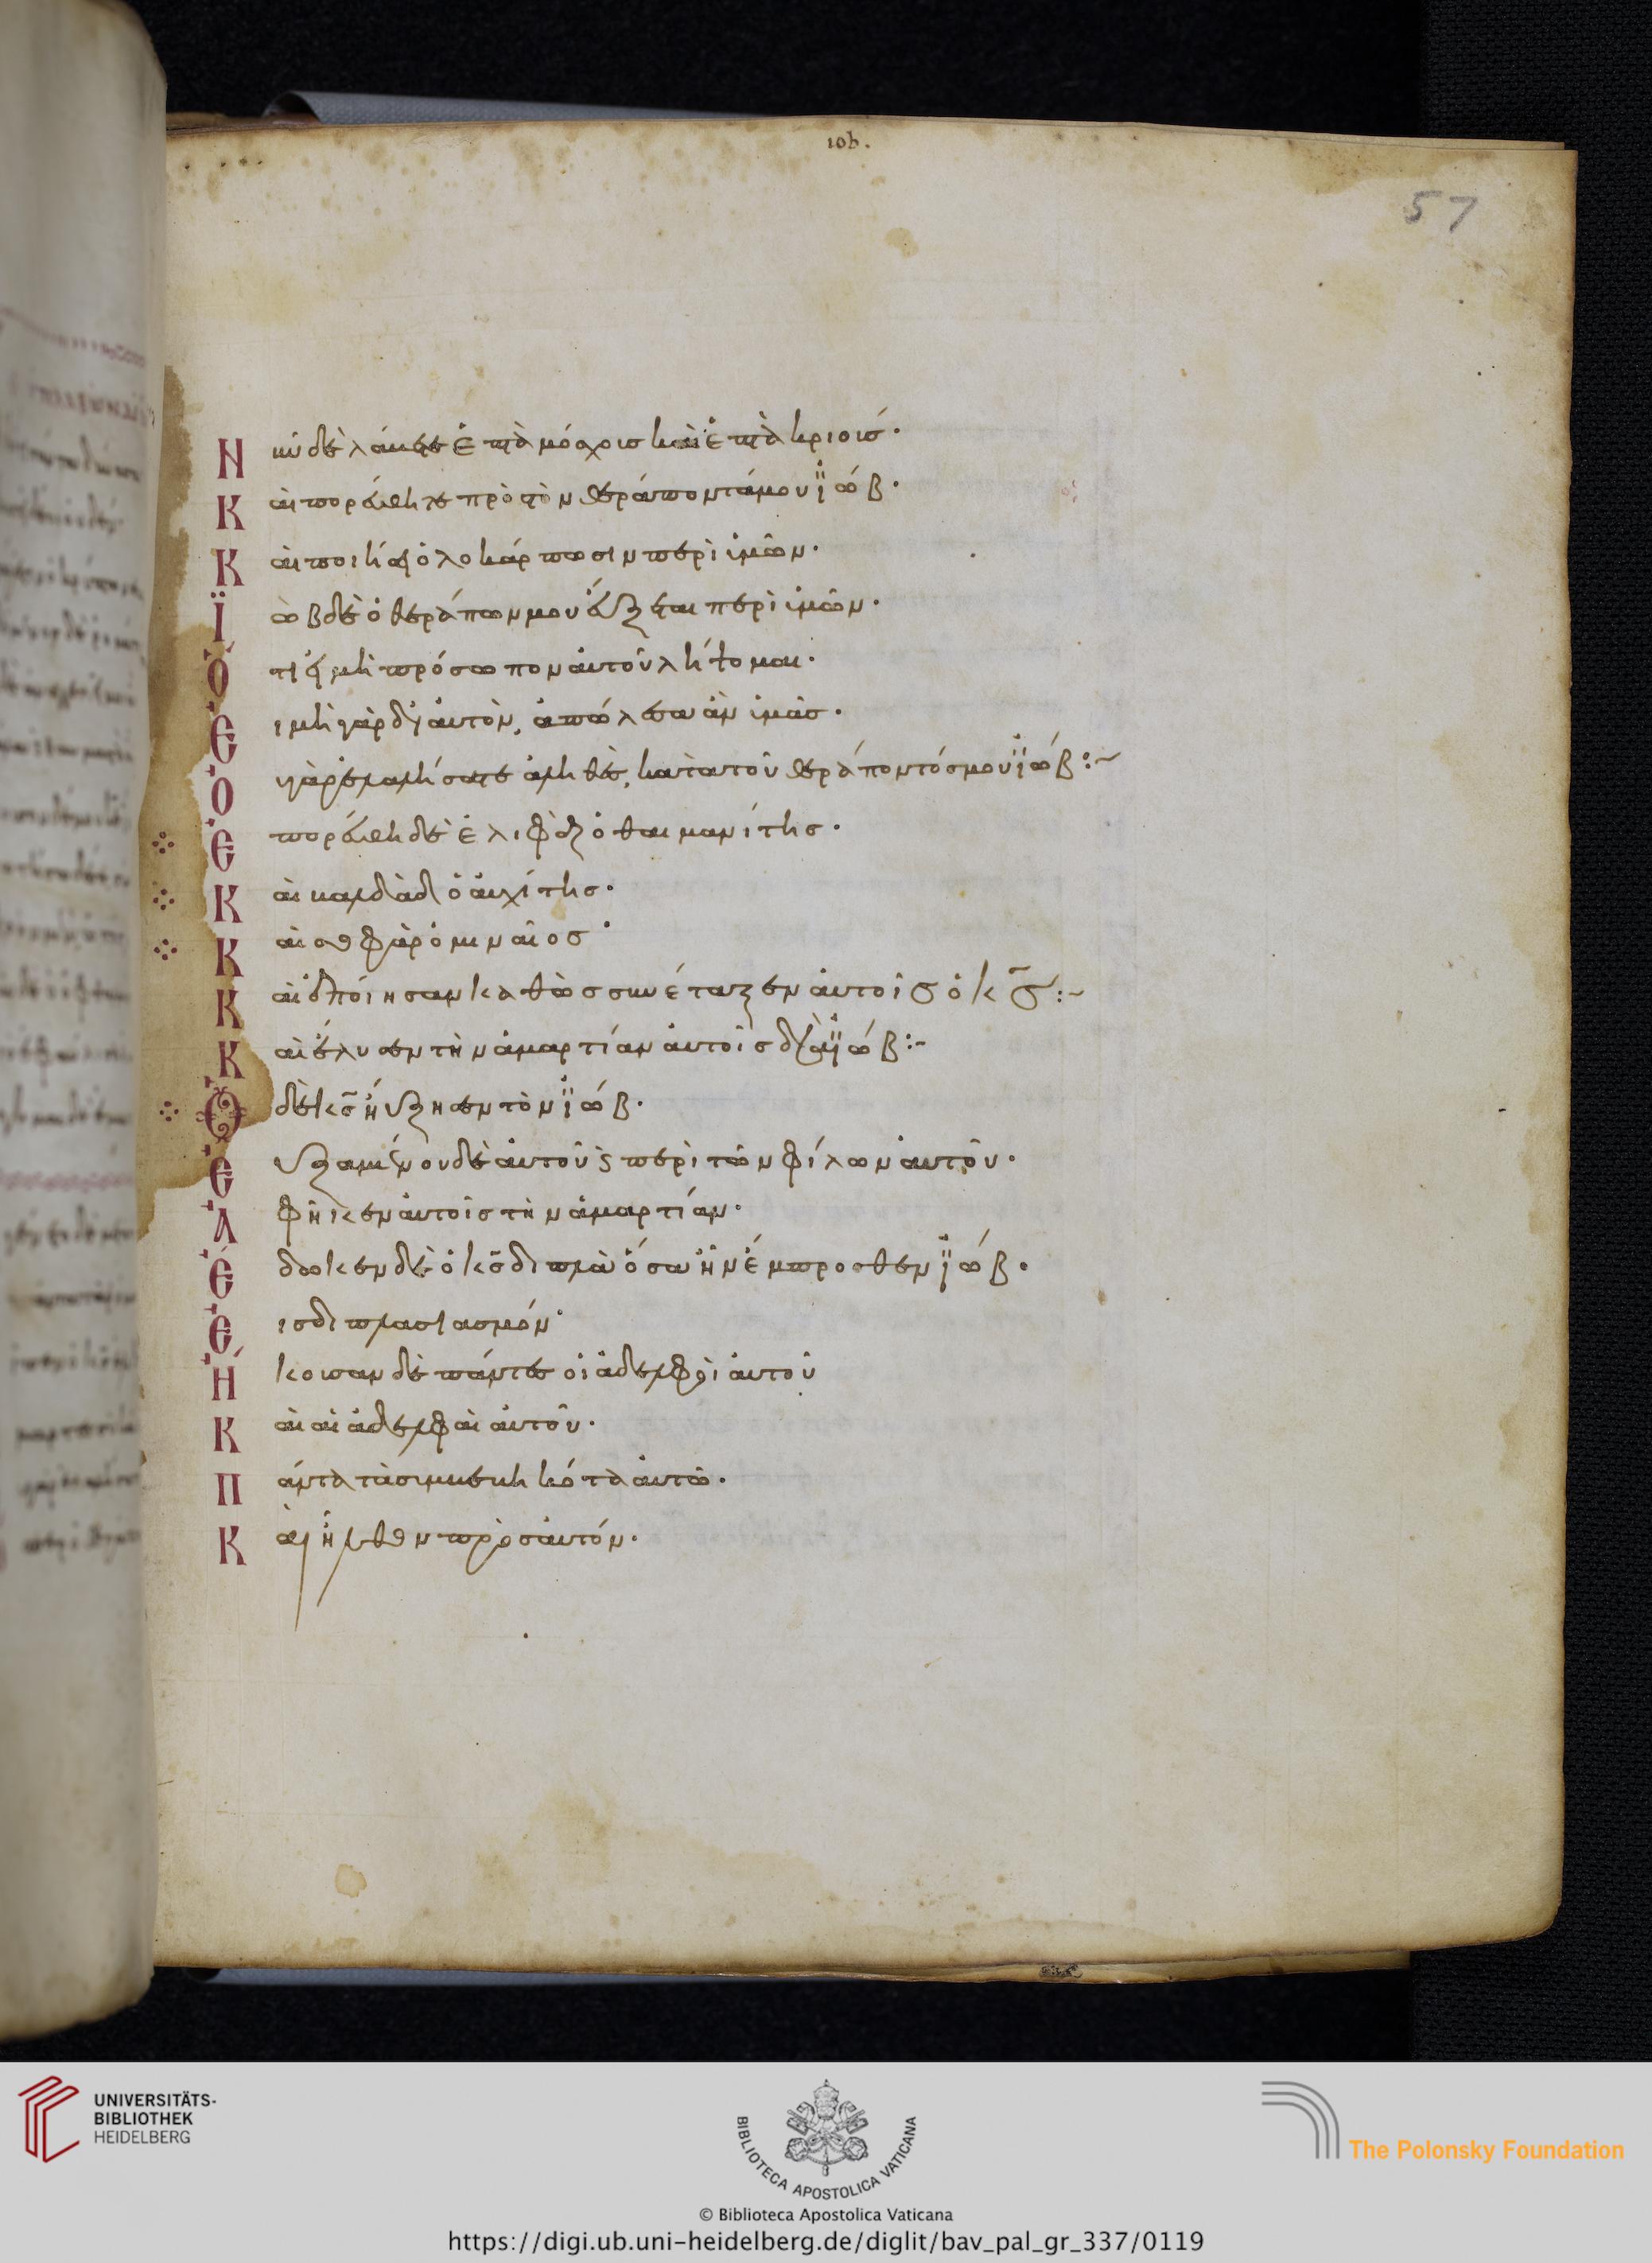 ιοb.
57
Νυνὶ δὲ λάβετε ἑπτὰ μόσχοις καὶ ἑπτὰ κριοὺς·
Καὶ πορεύθητε πρὸς τὸν θεράποντά μου ϊώβ·
Καὶ ποιήσει ὁλοκάρπωσιν περὶ ὑμῶν·
Ϊὼβ δὲ ὁ θεράπων μου εὔξεται περὶ ὑμῶν·
Ὅτι εἰ μὴ πρόσωπον αὐτοῦ λήψομαι·
Εἰ μὴ γὰρ δι' αὐτὸν, ἀπώλεσα ἂν ὑμᾶς·
Οὐ γὰρ ἐλαλήσατε ἀληθὲς, κατὰ τοῦ θεράποντός μου ϊώβ:~
Ἐπορεύθη δὲ ἐλιφὰζ ὁ θαιμανίτης·
Καὶ βαλδὰδ ὁ αὐχίτης·
Καὶ σωφὰρ ὁ μιναῖος·
Καὶ ἐποίησαν καθὼς συνέταξεν αὐτοῖς ὁ κς:~
Καὶ ἔλυσεν τὴν ἁμαρτίαν αὐτοῖς διὰ ϊώβ:~
Ὁ δὲ κς ηὔξησεν τὸν ϊώβ·
Εὐξαμένου δὲ αὐτοῦ καὶ περὶ τῶν φίλων αὐτοῦ·
Ἀφῆκεν αὐτοῖς τὴν ἁμαρτίαν·
Ἔδωκεν δὲ ὁ κς διπλὰ ὅσα ἦν ἔμπροσθεν ϊώβ·
Εἰς διπλασιασμόν·
Ἤκουσαν δὲ πάντες οἱ ἀδελφοὶ αὐτοῦ
Καὶ αἱ ἀδελφαὶ αὐτοῦ·
Πάντα τὰ συμβεβηκότα αὐτῶ·
Καὶ ἦλθον πρὸς αὐτόν·
UNIVERSITÄTS-
BIBLIOTHEK
HEIDELBERG
BIBLIOTECA APOSTOLICA VATICANA
The Polonsky Foundation
© Biblioteca Apostolica Vaticana
https://digi.ub.uni-heidelberg.de/diglit/bav_pal_gr_337/0119